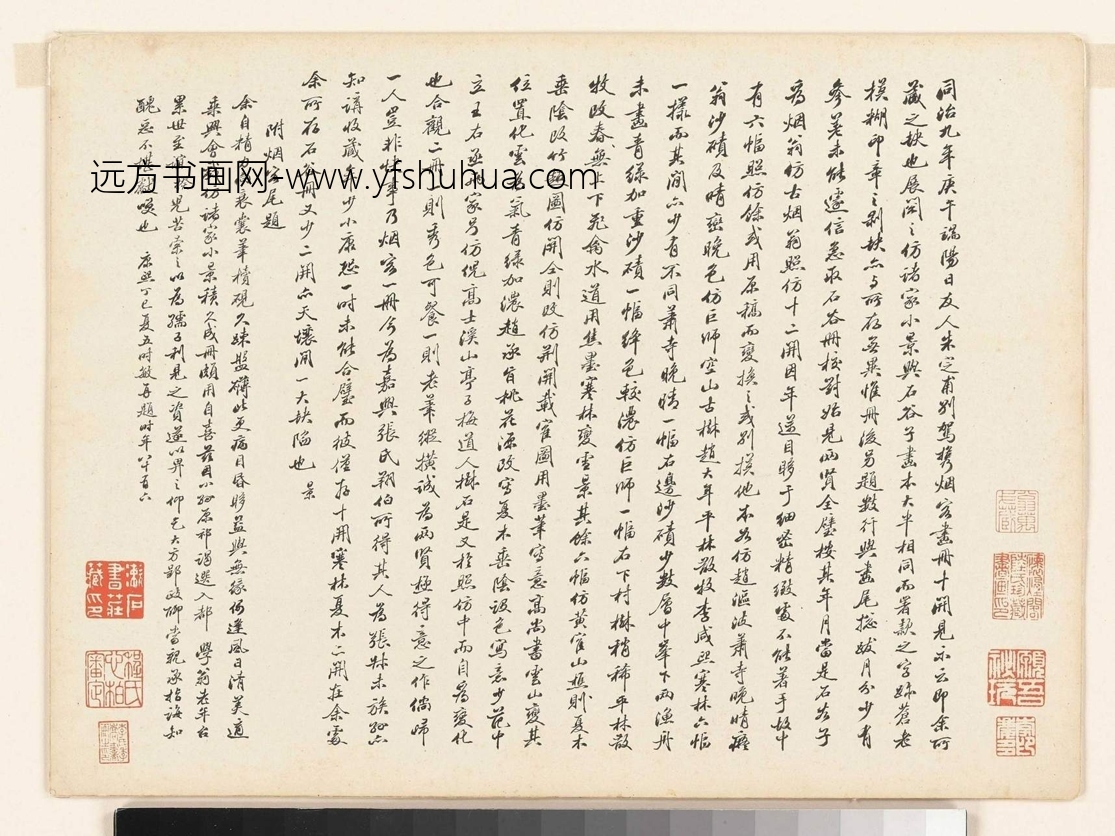 同治九年庚午端陽日友人朱定甫別駕攜烟客畫冊十開見示云即余所
藏之缺也展閱之仿諸家小景與石谷子畫本大半相同而署款之字姝蒼老
模糊印章之剝缺亦與所存無異惟冊後另題數行與畫尾搃跋月分少有
參差未能遽信急取石谷冊校對始見兩賢全璧按其年月當是石谷子
為烟翁仿古烟翁照仿十二開因年邁目眵于細密精緻處不能著手故中
有六幅照仿餘或用原稿而變換之或別摸他本如仿趙漚波蕭寺晚晴癡
翁沙磧及晴巒晚色仿巨師空山古樹趙大年平林散牧李咸熙寒林六幅
一樣而其間亦少有不同蕭寺晚晴一幅右邊沙磧少數層中華下兩漁舟
未畫青綠加重沙磧一幅絳色較濃仿巨師一幅右下村樹稍稀平林散
牧改春無上下飛禽水道用焦墨寒林變雪景其餘六幅仿黃鶴山樵則夏木
垂陰改竹圖仿關仝則改仿荊關載雀圖用墨筆寫意高尚書雲山變其
位置化雲為氣青綠加濃趙承旨桃花源改寫夏木垂陰設色寫意少范中
立王右丞家另仿倪高士溪山亭子梅道人樹石是又於照仿中而自為變化
也合觀二冊則秀色可餐一則老筆縱橫誠為兩賢極得意之作倘歸
一人豈非快事乃烟客一冊今為嘉興張氏翔伯所得其人為張叔未族孫亦
知講收藏少小康恐一時未能合璧而彼僅存十開寒林夏木二開在余處
余所存石谷冊又少二開亦天壤間一大缺陷也 景
附烟客尾題
余自精衰筆積硯久疎盤礴此更病目昏眵益與無緣何逢風日清美適
乘興會仿諸家小景積久成冊頗用自喜茲因小孫原祁謁選入都 學翁老年台
累世至見苦索之以為孺子利見之資遂以畀之仰乞大方郢政聊當親承指誨知
醜惡不堪噴也 康熙丁巳夏五時敏再題時年八十有六
漱石
書莊
藏印
程氏
心柏
審定
顧
秋
远方书画网-www.yfshuhua.com